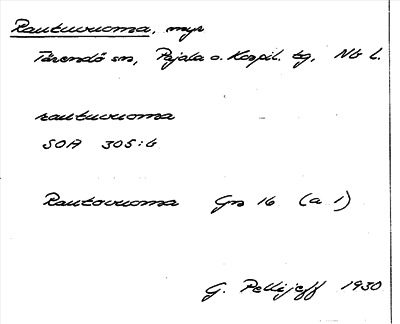 Rautuvuoma, myr
Tärendö sn, Pajala o. Korpil. tg, Nb l.
rautuvuoma
SOA 305:6
Rautovuoma Gs 16 (a 1)
G. Pellijeff 1930